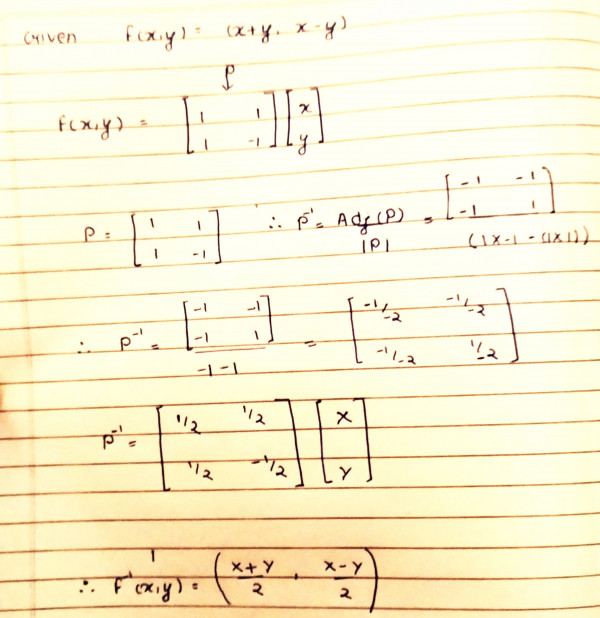 Given f(x,y) = (x+y, x-y)
P
f(x,y) = [1 1; 1 -1] [x; y]
P = [1 1; 1 -1] ∴ P⁻¹ = Adj(P) / |P| = [-1 -1; -1 1] / (1x-1 - (1x1))
∴ P⁻¹ = [-1 -1; -1 1] / -1-1 = [-1/-2 -1/-2; -1/-2 1/-2]
P⁻¹ = [1/2 1/2; 1/2 -1/2] [x; y]
∴ f⁻¹(x,y) = (x+y/2, x-y/2)